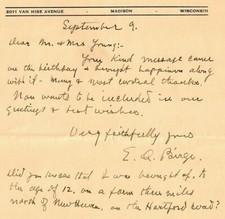 2011 VAN HISE AVENUE - MADISON - WISCONSIN
September 9.
Dear Mr. & Mrs Young:-
Your kind message came
on the birthday & brought happiness along
with it - Many & most cordial thanks!
Nan wants to be included in our
greetings & best wishes.
Very faithfully yours
E. A. Birge.
Did you know that I was brought up, to
the age of 12, on a farm three miles
north of New Haven, on the Hartford road?